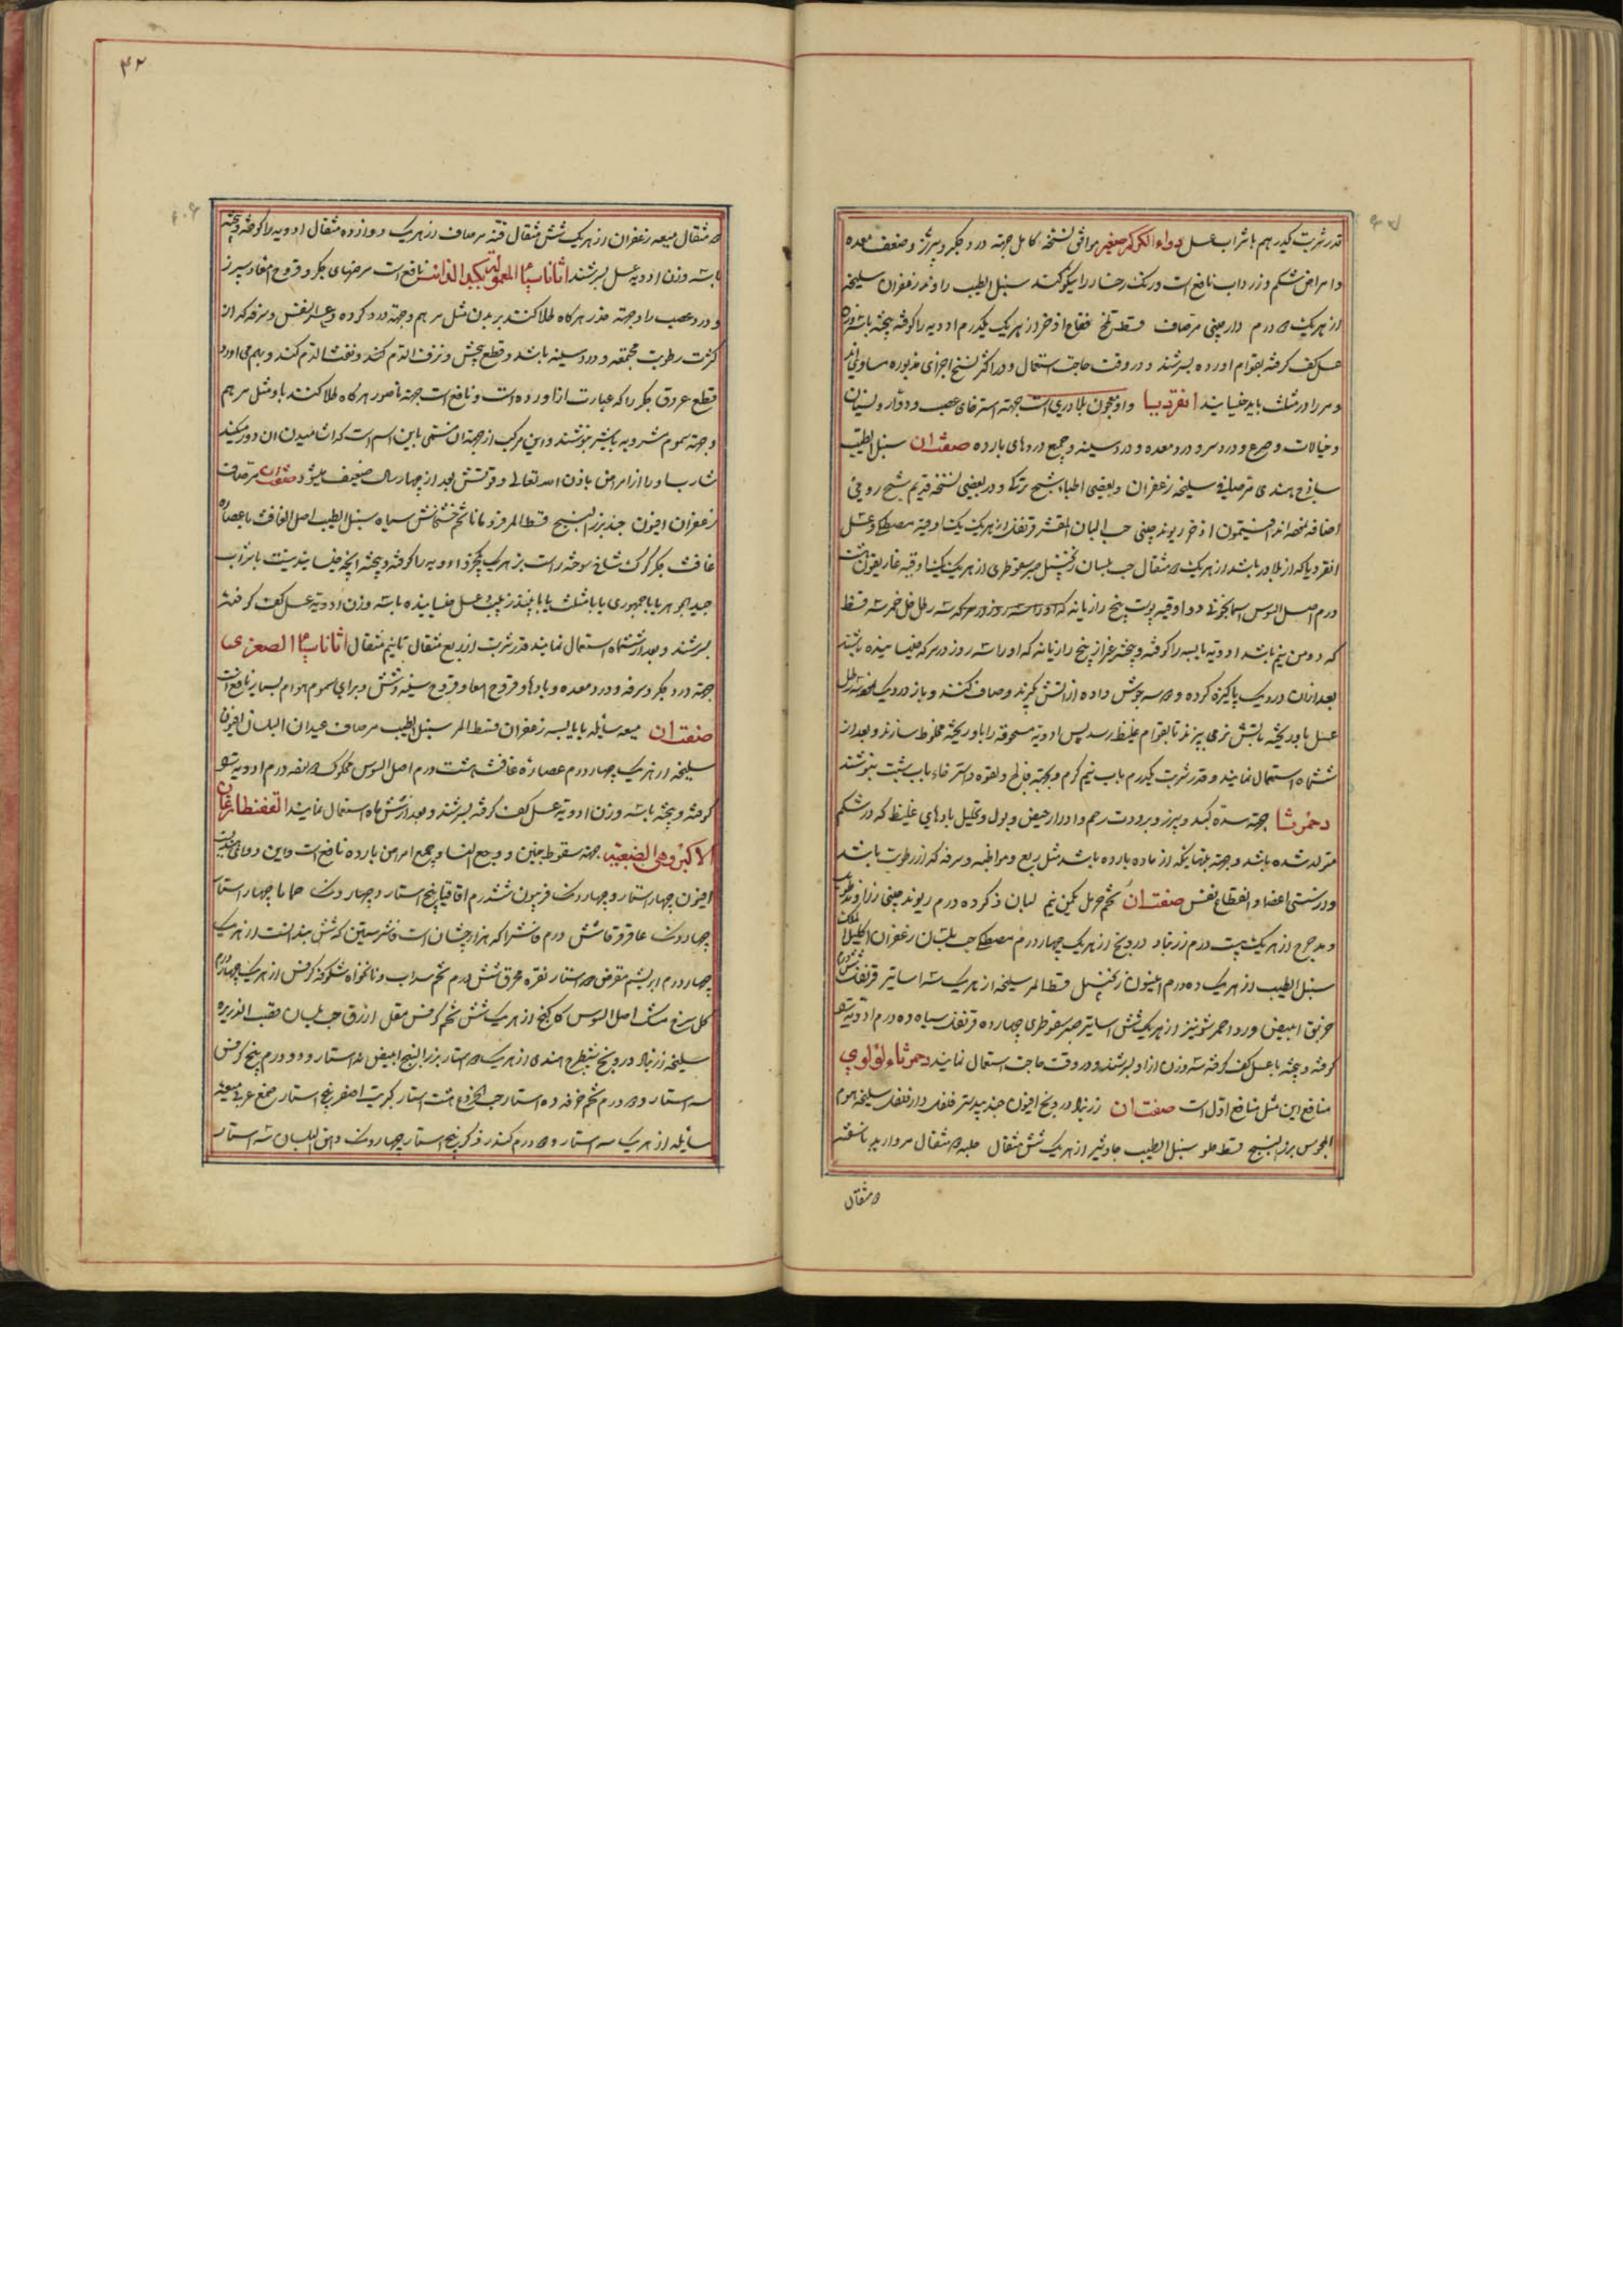 قدر شربت یکدرهم با شراب عسل دواء الکرکم صغیر موافق نسخه کامل جهته درد جگر و سپرز و ضعف معده
و امراض شکم و زرداب نافع است و رنک رخسار را نیکو کند سنبل الطیب راوند زعفران سلیخه
از هریک ۵ درم دارچینی مر صاف قسط تلخ فقاح اذخر از هریک یکدرم ادویه را کوفته بیخته با
عسل کف کرفته بقوام اورده بسرشند و در وقت حاجت استعمال و در اکثر نسخ اجزای مذبوره مساوی اند
و مر را در مثلث باید خیسانید انقردیا و او معجون بلادری است جهته استرخای عصب و دوار و نسیان
و خیالات و صرع و درد سر و درد معده و درد سینه و جمیع دردهای بارده صفت ان سنبل الطیب
ساذج هندی مر سلیخه زعفران و بعضی اطباء شیح ترکی و در بعضی نسخه قدیم شیح رومی
اضافه نموده اند افتیمون اذخر ریوند چینی حب البان المقشر قرنفل از هریک یک اوقیه مصطکی و عسل
انقردیا که از بلادر باشد از هریک ۵ مثقال حب بلسان زنجبیل صبر سقوطری از هریک یک اوقیه غاریقون هشت
درم اصل السوس اسمانجونی دو اوقیه پوست بیخ رازیانه که او را سه روز در سرکه سه رطل خل خمر سه قسط
که دو من نیم باشد ادویه یابسه را کوفته و بیخته غیر از بیخ رازیانه که او را سه روز در سرکه خیسانیده باشند
بعد ازان در دیک پاکیزه کرده و ۵ سه جوش داده از اتش کیرند و صاف کنند و باز در دیک سه رطل
عسل باو ریخته باتش نرم بپزند تا بقوام غلیظ رسد پس ادویه مسحوقه را باو ریخته مخلوط سازند و بعد از
ششماه استعمال نمایند و قدر شربت یکدرم باب نیم کرم و بجهته فالج و لقوه و استرخاء باب شبت بنوشند
دحمرثا جهته سده کبد و سپرز و برودت رحم و ادرار حیض و بول و تحلیل بادهای غلیظ که در شکم
متولد شده باشد و جهته تبهائیکه از ماده بارده باشد مثل ربع و مواظبه و سرفه که از رطوبت باشد
و درشتی اعضا و انقطاع نفس صفت ان تخم حرمل یکمن نیم لبان ذکر ده درم ریوند چینی زراوند طویل
و مدحرج از هریک بیست درم زرنباد درونج از هریک چهار درم مصطکی حب بلسان زعفران اکلیل الملک
سنبل الطیب از هریک ده درم انیسون زنجبیل قسط المر سلیخه از هریک سه اساتیر قرنفل
خربق ابیض ورد احمر شونیز از هریک شش اساتیر صبر سقوطری چهارده قرنفل سیاه ده درم ادویه را
کوفته و بیخته با عسل کف کرفته سه وزن ازان بسرشند و در وقت حاجت استعمال نمایند دحمرثاء لؤلوی
منافع این مثل منافع اول است صفت ان زرنباد درونج افیون جندبیدستر فلفل دارفلفل سلیخه موم
المجوس بزر البنج قسط حلو سنبل الطیب جاوشیر از هریک شش مثقال حلبه ۵ مثقال مروارید ناسفته
۵ مثقال
۴۲
۵ مثقال میعه زعفران از هریک شش مثقال قنه مر صاف از هریک دوازده مثقال ادویه را کوفته و بیخته
با سه وزن ادویه عسل بسرشند اثاناسیا المعمولة بکبد الذئب نافع است مرضهای جگر و قروح امعا و سپرز
و درد عصب را و جهته خدر هرکاه طلا کنند بر بدن مثل مرهم و جهته درد کرده و عسر النفس و سرفه که از
کثرت رطوبت مجتمعه و درد سینه باشد و قطع پیچش و نزف الدم کند و نفث الدم کند و بهم می اورد
قطع عروق جگر را که عبارت از اورده است و نافع است جهته ناصور هرکاه طلا کنند باو مثل مرهم
و جهته سموم مشروبه با شیر بنوشند و این مرکب از جهته ان مسمی باین اسم است که اشامیدن ان دور میکند
شارب او را از امراض باذن الله تعالی و قوتش بعد از چهار سال ضعیف میشود صفت ان مر صاف
زعفران افیون جند بزر البنج قسط المر فرومانا تخم خشخاش سیاه سنبل الطیب اصل الغافث یا عصاره
غافث جگر کرک شاخ سوخته راست بز هریک یکجزء ادویه را کوفته و بیخته انچه خیسانیدنیست با شراب
جید الجوهر یا با جمهوری یا با مثلث یا با نبیذ زبیب و عسل خیسانیده با سه وزن ادویه عسل کف کرفته
بسرشند و بعد از ششماه استعمال نمایند قدر شربت از ربع مثقال تا نیم مثقال اثاناسیا الصغری
جهته درد جگر و سرفه و درد معده و بادها و قروح امعا و قروح سینه و شش و برای سموم هوام بسیار نافع است
صفت ان میعه سائله یا یابسه زعفران قسط المر سنبل الطیب مر صاف عیدان البلسان افیون
سلیخه از هریک چهار درم عصاره غافث هشت درم اصل السوس محکوک ۵ درم ادویه را
کوفته و بیخته با سه وزن ادویه عسل کف کرفته بسرشند و بعد از شش ماه استعمال نمایند القفنطارغان
الاکبر و هی الضبعیة جهته سقوط جنین و وجع النسا و جمیع امراض بارده نافع است و این دوای هندیست
افیون چهار استار و چهار دنک فربیون شش درم اقاقیا پنج استار و چهار دنک حماما چهار استار
چهار دنک عاقرقرحا شش درم فاشرا که هزار چشان است فاشرستین که شش بندانست از هریک
چهار درم ابریشم مقرض ۵ استار نقره محرق شش درم تخم سداب و نانخواه شکوفه کرفس از هریک چهار درم
کل سرخ مشک اصل السوس کاکنج از هریک شش تخم کرفس مقل ازرق حب بلسان قصب الذریره
سلیخه زرنباد درونج شیطرج هندی از هریک ۵ استار بزر البنج ابیض نه استار و دو درم بیخ کرفس
سه استار و ۵ درم تخم خرفه ده استار حب الخروع هشت استار کبریت اصفر پنج استار صمغ عربی میعه
سائله از هریک سه استار و ۵ درم کندر ذکر پنج استار چهار دنک دهن البلسان سه استار